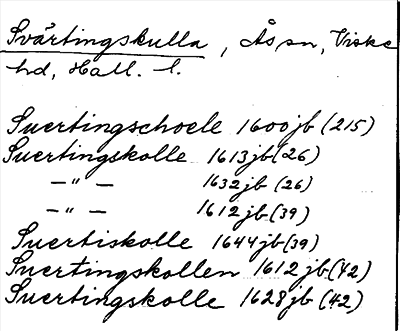 Svärtingskulla, Ås sn, Viske
hd, Hall. l.
Suertingschoele 1600jb (215)
Suertingskolle 1613jb (26)
—"— 1632jb (26)
—"— 1612jb (39)
Suertiskolle 1644jb (39)
Suertingskollen 1612jb (42)
Suertingskolle 1628jb (42)